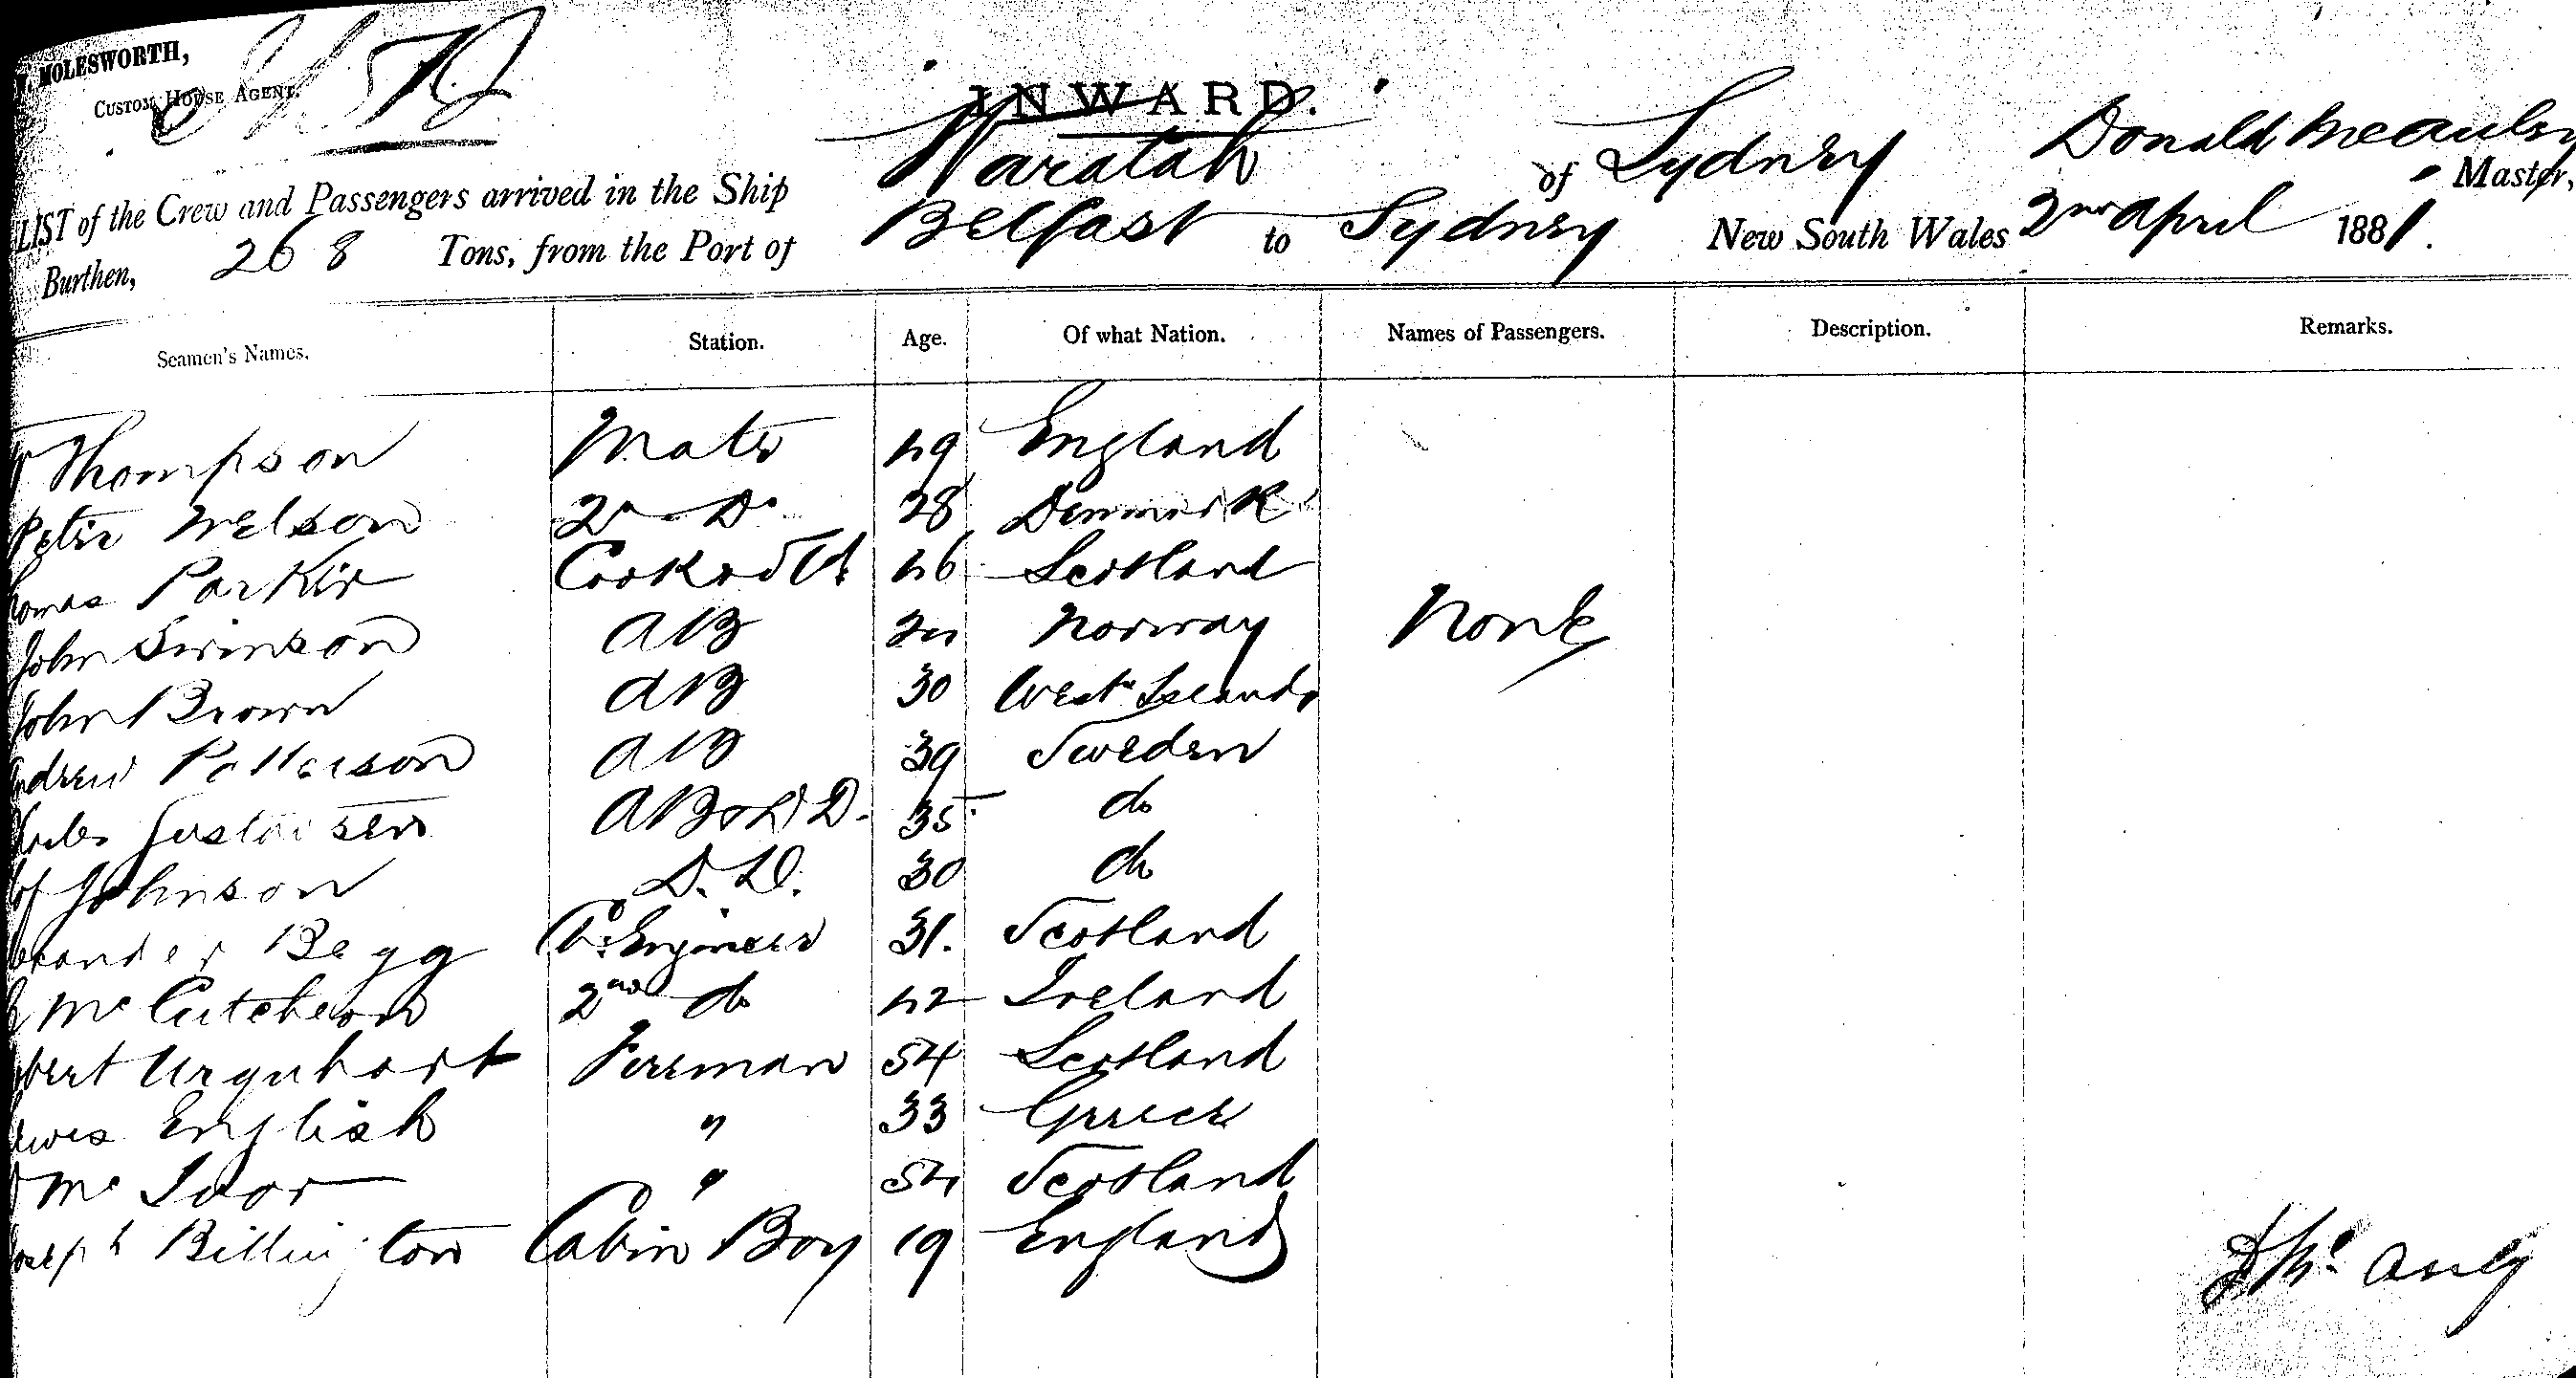 MOLESWORTH,
CUSTOM HOUSE AGENT.
INWARD.
LIST of the Crew and Passengers arrived in the Ship Waratah of Sydney Donald McAuley Master,
Burthen, 268 Tons, from the Port of Belfast to Sydney New South Wales 2nd April 1881.
Seamen's Names. Station. Age. Of what Nation. Names of Passengers. Description. Remarks.
Thompson Mate 49 England
Peter Nelson 2nd Do 28 Denmark
homas Parker Cook & Std 46 Scotland
John Swinson AB 24 Norway None
John Brown AB 30 West Islands
ndrew Patterson AB 39 Sweden
harles Gustaisen AB & D D. 35 do
lof Johnson D. D. 30 do
exander Begg C. Engineer 31. Scotland
Mc Cutcheon 2nd do 42 Ireland
obert Urquhart Fireman 54 Scotland
ewis English " 33 Greece
Mc Ivor " 54 Scotland
oseph Billington Cabin Boy 19 England
D Mc Auly